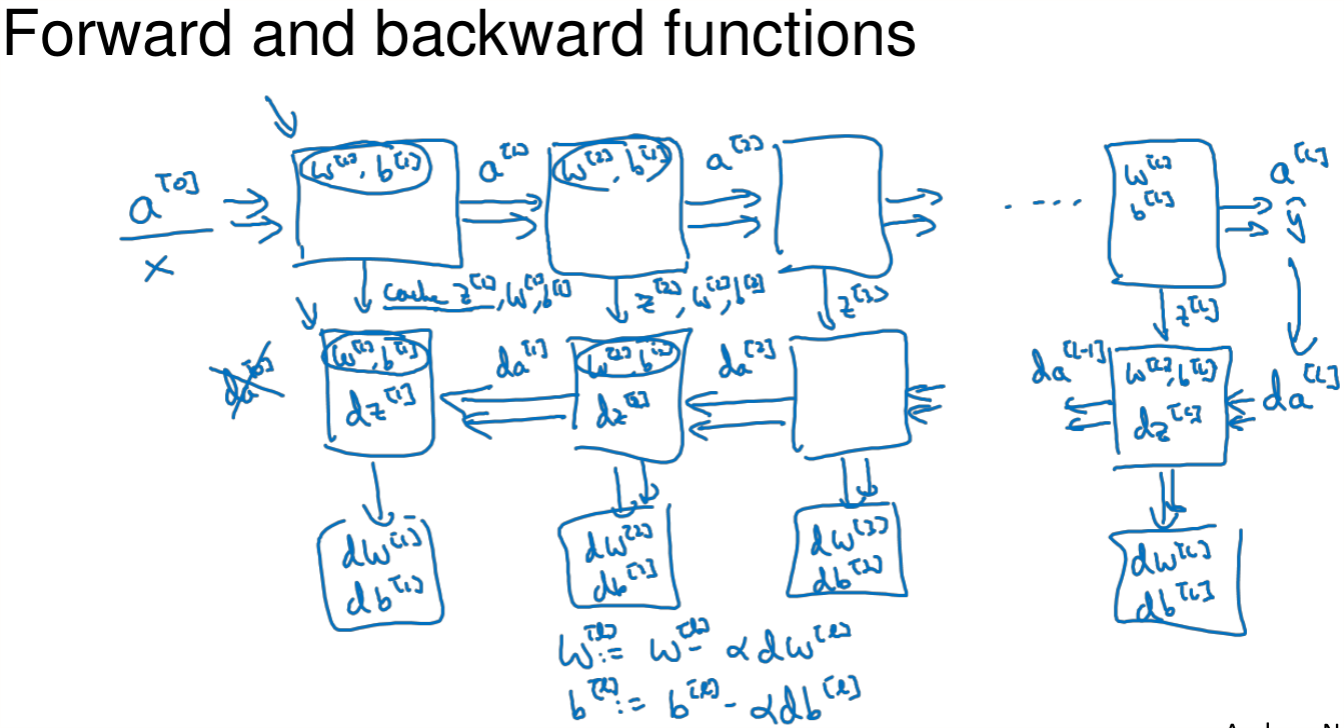 Forward and backward functions
a^[0]
x
w^[1], b^[1]
a^[1]
w^[2], b^[2]
a^[2]
. . . .
w^[L]
b^[L]
a^[L]
ŷ
cache z^[1], w^[1], b^[1]
z^[2], w^[2], b^[2]
z^[3]
z^[L]
da^[0]
w^[1], b^[1]
dz^[1]
da^[1]
w^[2], b^[2]
dz^[2]
da^[2]
da^[L-1]
w^[L], b^[L]
dz^[L]
da^[L]
dw^[1]
db^[1]
dw^[2]
db^[2]
dw^[3]
db^[3]
dw^[L]
db^[L]
w^[l] := w^[l] - α dw^[l]
b^[l] := b^[l] - α db^[l]